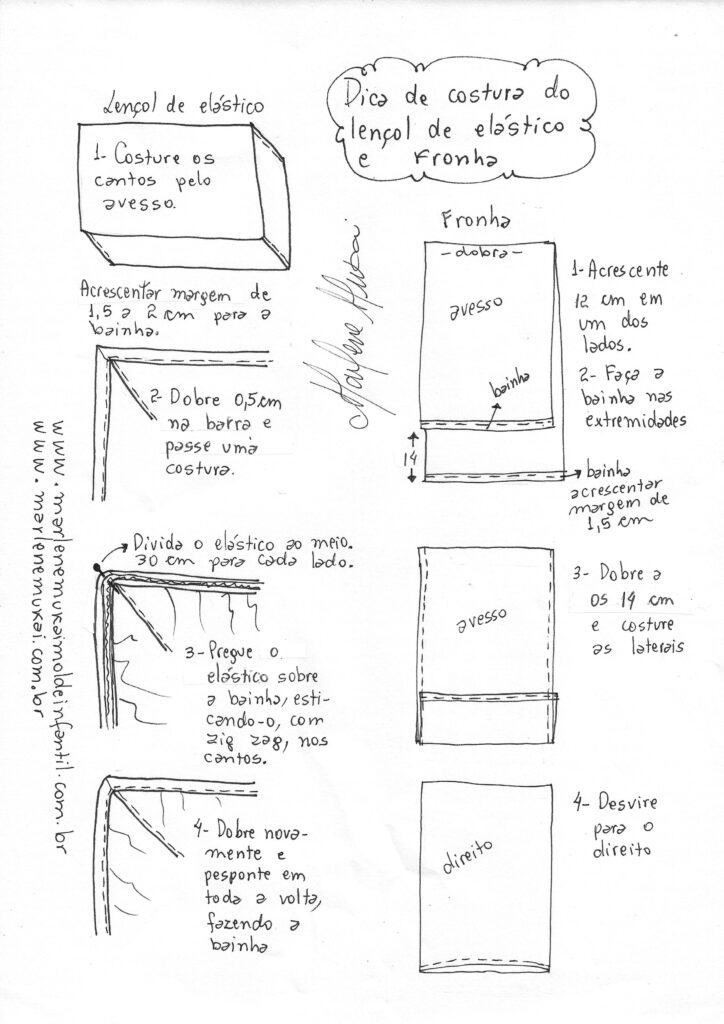 Dica de costura do
lençol de elástico
e Fronha
Lençol de elástico
1- Costure os
cantos pelo
avesso.
Acrescentar margem de
1,5 a 2 cm para a
bainha.
2- Dobre 0,5cm
na barra e
passe uma
costura.
Divida o elástico ao meio.
30 cm para cada lado.
3- Pregue o
elástico sobre
a bainha, esti-
cando-o, com
zig zag, nos
cantos.
4- Dobre nova-
mente e
pesponte em
toda a volta,
fazendo a
bainha
www.marlenemukaimoldeinfantil.com.br
www.marlenemukai.com.br
Marlene Mukai
Fronha
-dobra-
avesso
bainha
14
1- Acrescente
12 cm em
um dos
lados.
2- Faça a
bainha nas
extremidades
bainha
acrescentar
margem de
1,5 cm
avesso
3- Dobre a
os 14 cm
e costure
as laterais
direito
4- Desvire
para o
direito